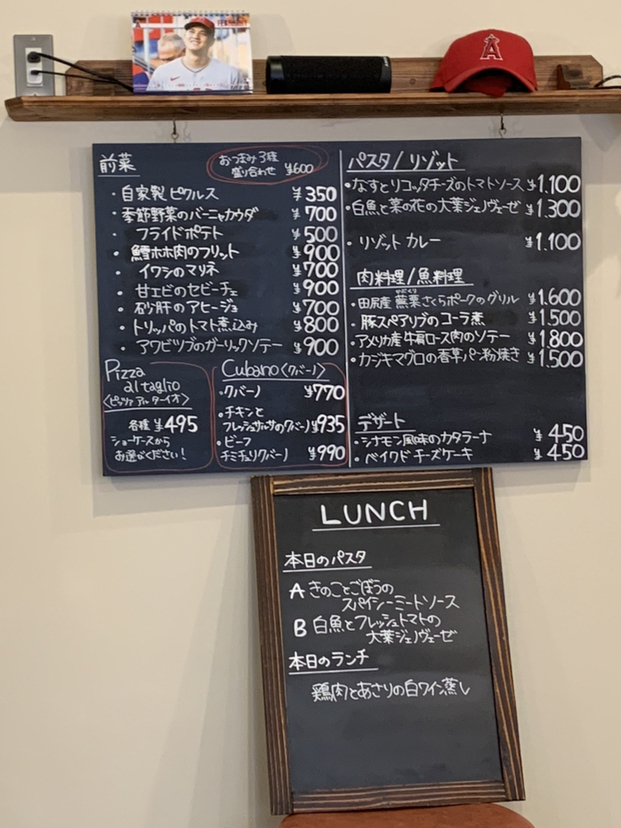 A
前菜
おつまみ3種
盛り合わせ ¥600
・自家製ピクルス ¥350
・季節野菜のバーニャカウダ ¥700
フライドポテト ¥500
・鱈ホホ肉のフリット ¥900
・イワシのマリネ ¥700
・甘エビのセビーチェ ¥900
・砂肝のアヒージョ ¥700
・トリッパのトマト煮込み ¥800
・アワビツブのガーリックソテー ¥900
Pizza
al taglio
〈ピッツァ アル ターイオ〉
各種 ¥495
ショーケースから
お選びください!
Cubano〈クバーノ〉
・クバーノ ¥770
・チキンと
フレッシュサルサのクバーノ ¥935
・ビーフ
チミチュリクバーノ ¥990
パスタ/リゾット
・なすとリコッタチーズのトマトソース ¥1.100
・白魚と菜の花の大葉ジェノヴェーゼ ¥1.300
・リゾットカレー ¥1.100
肉料理/魚料理
・田尻産 蕪栗さくらポークのグリル ¥1.600
・豚スペアリブのコーラ煮 ¥1.500
・アメリカ産牛肩ロース肉のソテー ¥1.800
・カジキマグロの香草パン粉焼き ¥1.500
デザート
・シナモン風味のカタラーナ ¥450
・ベイクドチーズケーキ ¥450
LUNCH
本日のパスタ
A きのことごぼうの
スパイシーミートソース
B 白魚とフレッシュトマトの
大葉ジェノヴェーゼ
本日のランチ
鶏肉とあさりの白ワイン蒸し